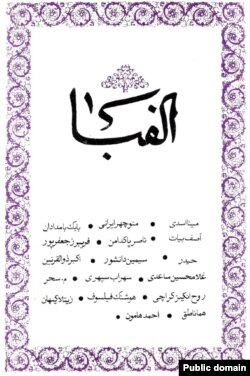 الفبا
مینا اسدی • منوچهر ایرانی • بابک بامدادان
آصف بیات • ناصر پاکدامن • فریبرز جعفرپور
حیدر • سیمین دانشور • اکبر ذوالقرنین
غلامحسین ساعدی • سهراب سپهری • م. سحر
روح‌انگیز کراچی • هوشنگ فیلسوف • زیبلا کیهان
هما ناطق • احمد هامون •
Public domain